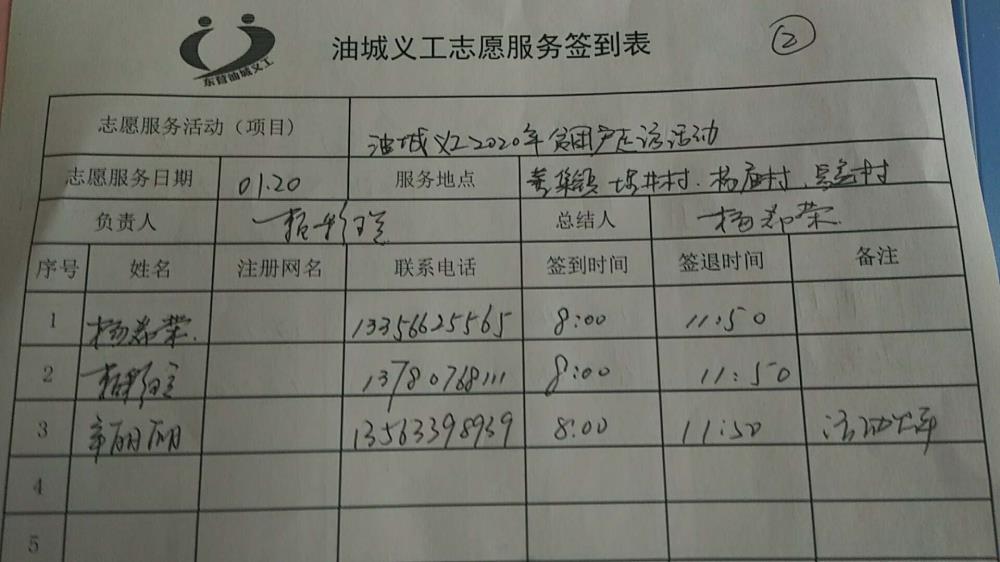 东营油城义工
油城义工志愿服务签到表 2
志愿服务活动（项目） 油城义工2020年贫困户走访活动
志愿服务日期 01.20 服务地点 井村、杨庙村、村
负责人 总结人 杨荣
序号 姓名 注册网名 联系电话 签到时间 签退时间 备注
1 杨荣 13356625565 8:00 11:50
2 13780768111 8:00 11:50
3 丽丽 13563398939 8:00 11:50 活动
4
5